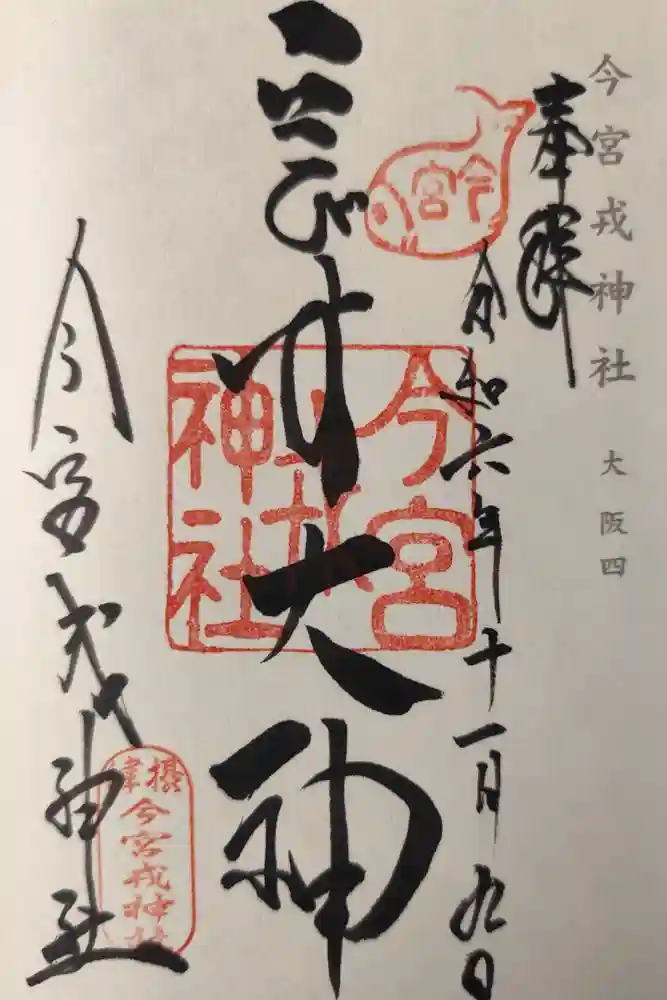 今宮戎神社 大阪四
奉拝
令和六年十一月九日
今宮
ゑびす大神
今宮戎神社
今宮戎神社
今宮戎神社